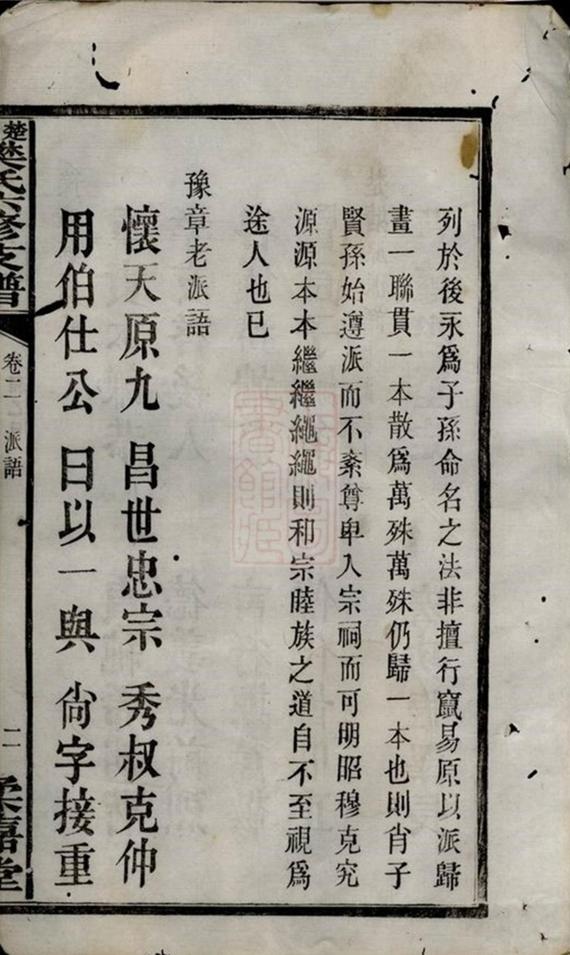 列於後永為子孫命名之法非擅行竄易原以派歸
畫一聯貫一本散為萬殊萬殊仍歸一本也則肖子
賢孫始遵派而不紊尊卑入宗祠而可明昭穆克究
源源本本繼繼繩繩則和宗睦族之道自不至視為
途人也已
豫章老派語
懷天原九 昌世忠宗 秀叔克仲
用伯仕公 日以一與 尙字接重
楚 氏六修支譜 卷二 派語 二 柔嘉堂